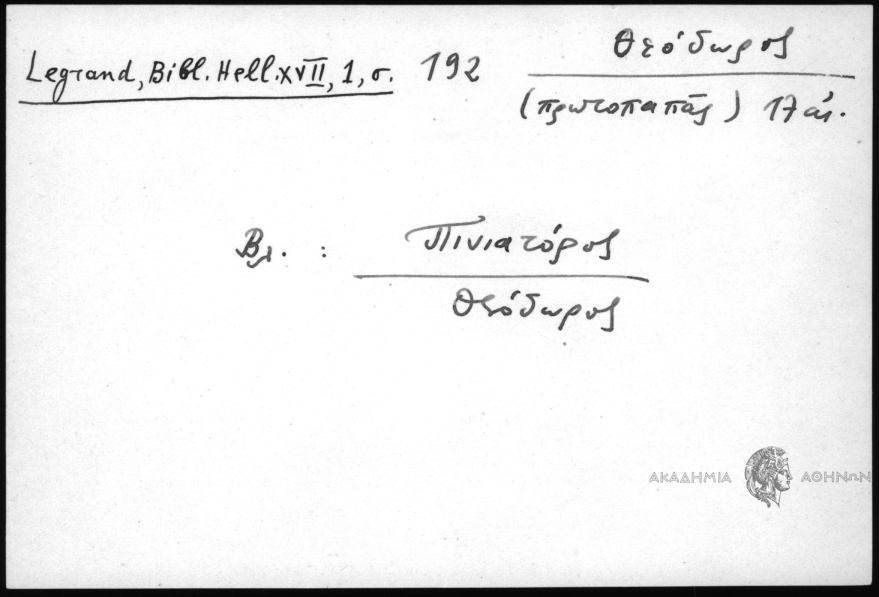 Legrand, Bibl. Hell. XVII, 1, σ. 192
Θεόδωρος
(πρωτοπαπᾶς) 17 αἰ.
Βλ. : Πινιατόρος
Θεόδωρος
ΑΚΑΔΗΜΙΑ ΑΘΗΝΩΝ